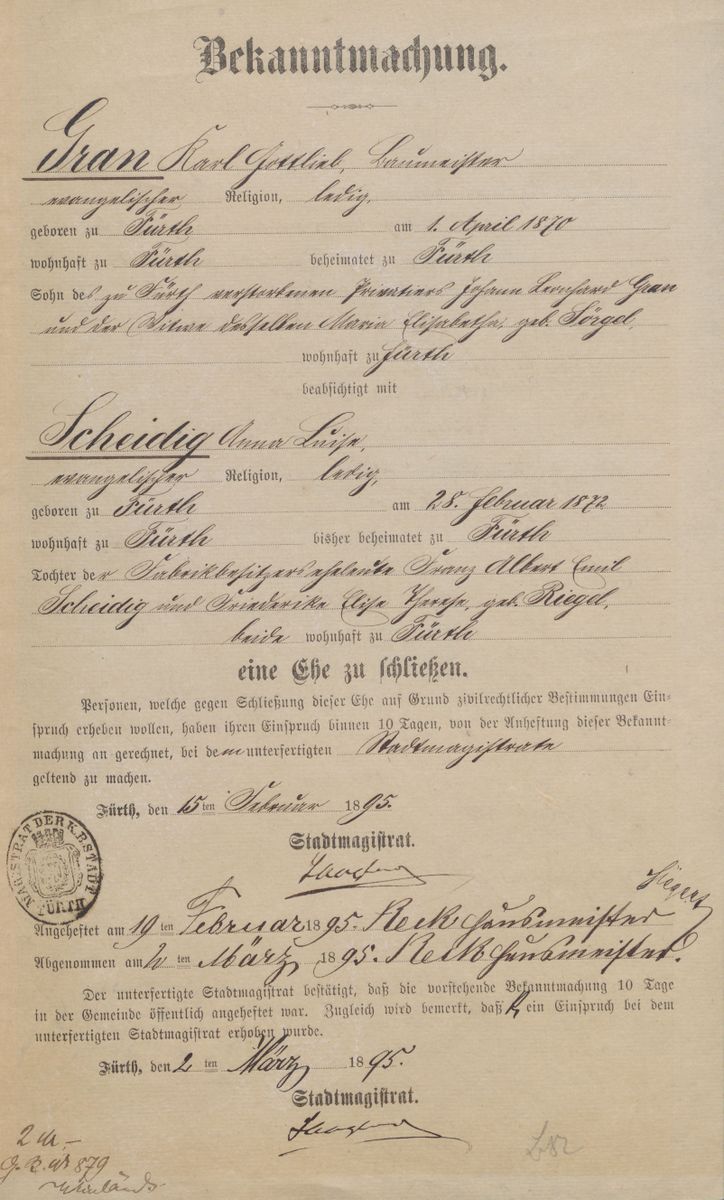 Bekanntmachung.
Gran Karl Gottlieb, Baumeister
evangelischer Religion, ledig,
geboren zu Fürth am 1. April 1870
wohnhaft zu Fürth beheimatet zu Fürth
Sohn des zu Fürth verstorbenen Privatiers Johann Leonhard Gran
und der Witwe desselben Maria Elisabetha, geb. Sörgel,
wohnhaft zu Fürth
beabsichtigt mit
Scheidig Anna Luise,
evangelischer Religion, ledig,
geboren zu Fürth am 28. Februar 1872
wohnhaft zu Fürth bisher beheimatet zu Fürth
Tochter der Fabrikbesitzerseheleute Franz Albert Emil
Scheidig und Friederike Elise Therese, geb. Riegel,
beide wohnhaft zu Fürth
eine Ehe zu schließen.
Personen, welche gegen Schließung dieser Ehe auf Grund zivilrechtlicher Bestimmungen Ein-
spruch erheben wollen, haben ihren Einspruch binnen 10 Tagen, von der Anheftung dieser Bekannt-
machung an gerechnet, bei dem unterfertigten Stadtmagistrate
geltend zu machen.
Fürth, den 15ten Februar 1895.
Stadtmagistrat.
MAGISTRAT DER K.B. STADT FÜRTH
Siegert
Angeheftet am 19ten Februar 1895. Reck Hausmeister
Abgenommen am 2ten März 1895. Reck Hausmeister.
Der unterfertigte Stadtmagistrat bestätigt, daß die vorstehende Bekanntmachung 10 Tage
in der Gemeinde öffentlich angeheftet war. Zugleich wird bemerkt, daß kein Einspruch bei dem
unterfertigten Stadtmagistrat erhoben wurde.
Fürth, den 2ten März 1895.
Stadtmagistrat.
2 M.-
879